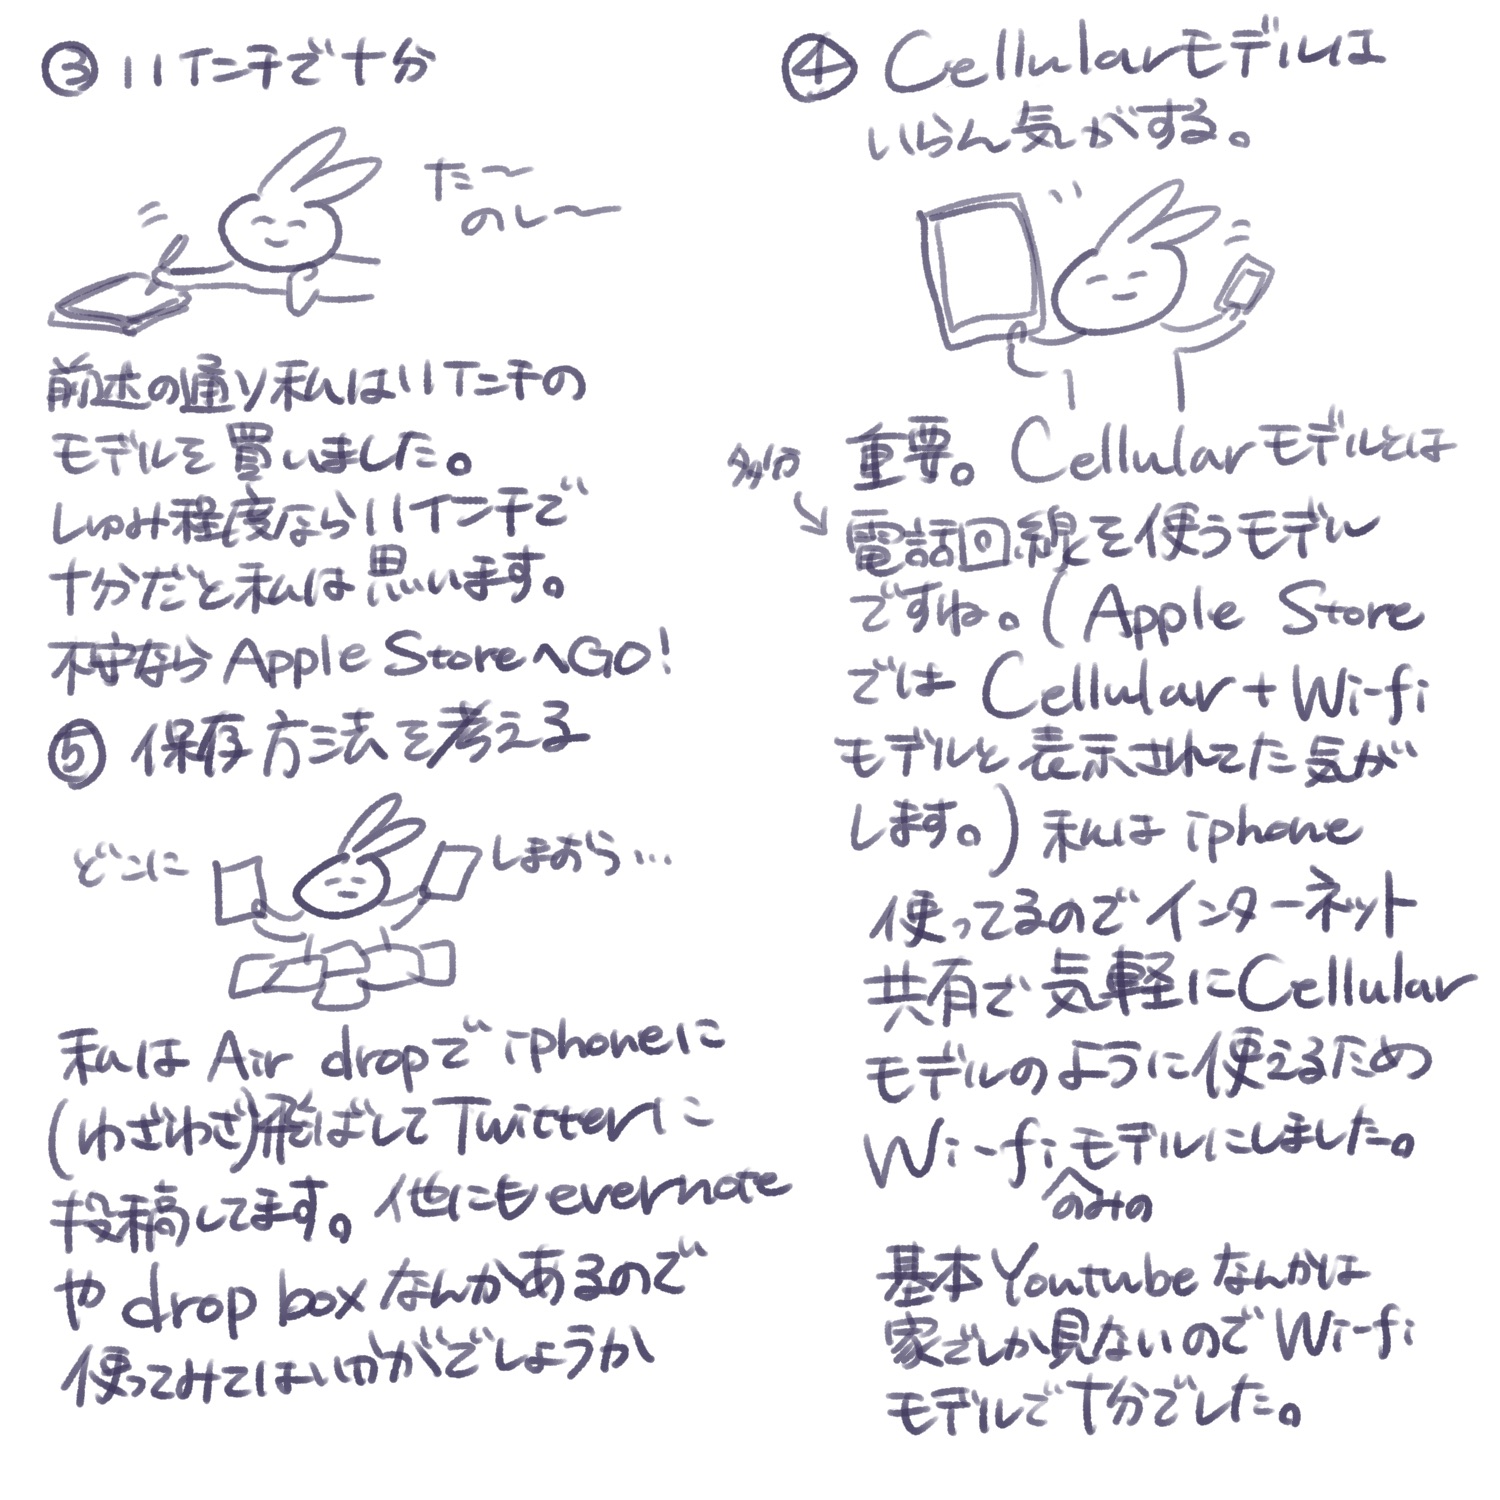 ③ 11インチで十分
た〜
のし〜
前述の通り私は11インチの
モデルを買いました。
しゅみ程度なら11インチで
十分だと私は思います。
不安なら Apple StoreへGO!
④ Cellularモデルは
いらん気がする。
重要。Cellularモデルとは
多分
電話回線を使うモデル
ですね。(Apple Store
では Cellular+Wi-fi
モデルと表示されてた気が
します。) 私は iphone
使ってるのでインターネット
共有で気軽にCellular
モデルのように使えるため
Wi-fiモデルにしました。
のみの
基本Youtubeなんかは
家でしか見ないのでWi-fi
モデルで十分でした。
⑤ 保存方法を考える
どこに
しまおう…
私は Air dropで iphoneに
(わざわざ)飛ばして Twitterに
投稿してます。他にも evernote
や drop box なんかあるので
使ってみてはいかがでしょうか